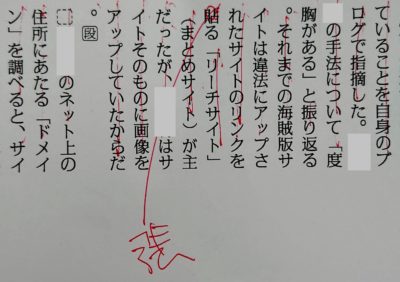 ていることを自身のブ
ログで指摘した。
の手法について「度
胸がある」と振り返る
。それまでの海賊版サ
イトは違法にアップさ
れたサイトのリンクを
貼る「リーチサイト」
(まとめサイト)が主
だったが、はサ
イトそのものに画像を
アップしていたからだ
。段
のネット上の
住所にあたる「ドメイ
ン」を調べると、サイ
張